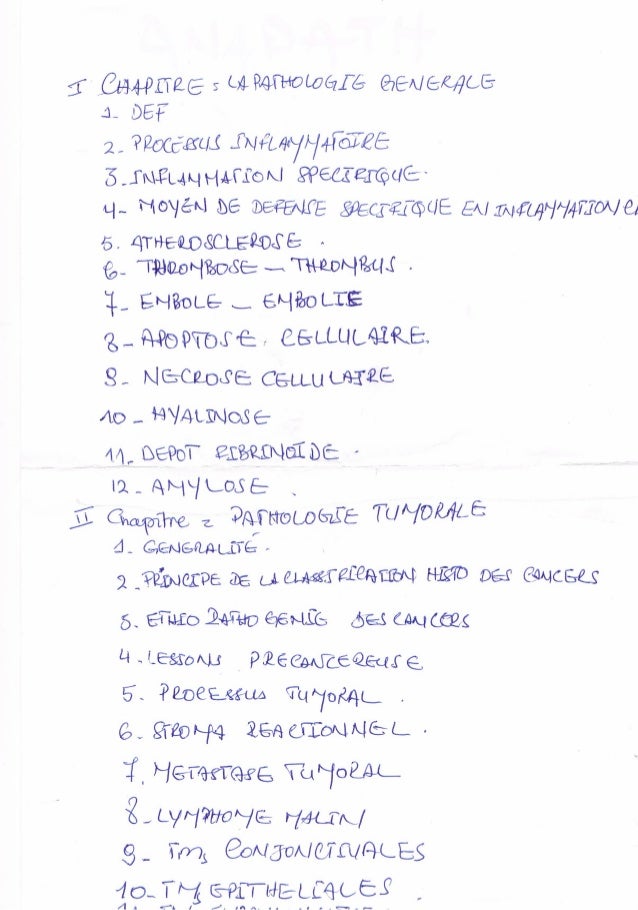 I CHAPITRE : LA PATHOLOGIE GENERALE
1. DEF
2- PROCESSUS INFLAMMATOIRE
3. INFLAMMATION SPECIFIQUE.
4- MOYEN DE DEFENSE SPECIFIQUE EN INFLAMMATION
5. ATHEROSCLEROSE .
6- THROMBOSE - THROMBUS .
7- EMBOLE - EMBOLIE
8- APOPTOSE. CELLULAIRE.
9- NECROSE CELLULAIRE
10- HYALINOSE
11. DEPOT FIBRINOIDE .
12- AMYLOSE .
II Chapitre : PATHOLOGIE TUMORALE
1. GENERALITÉ.
2. PRINCIPE DE LA CLASSIFICATION HISTO DES CANCERS
3. ETHIO PATHO GENIE DES CANCERS
4. LESSONS PRECANCEREUSE
5. PROCESSUS TUMORAL .
6- STROMA REACTIONNEL .
7. METASTASE TUMORAL
8- LYMPHOME MALIN
9- TMs CONJONCTIVALES
10- TMs EPITHELIALES .